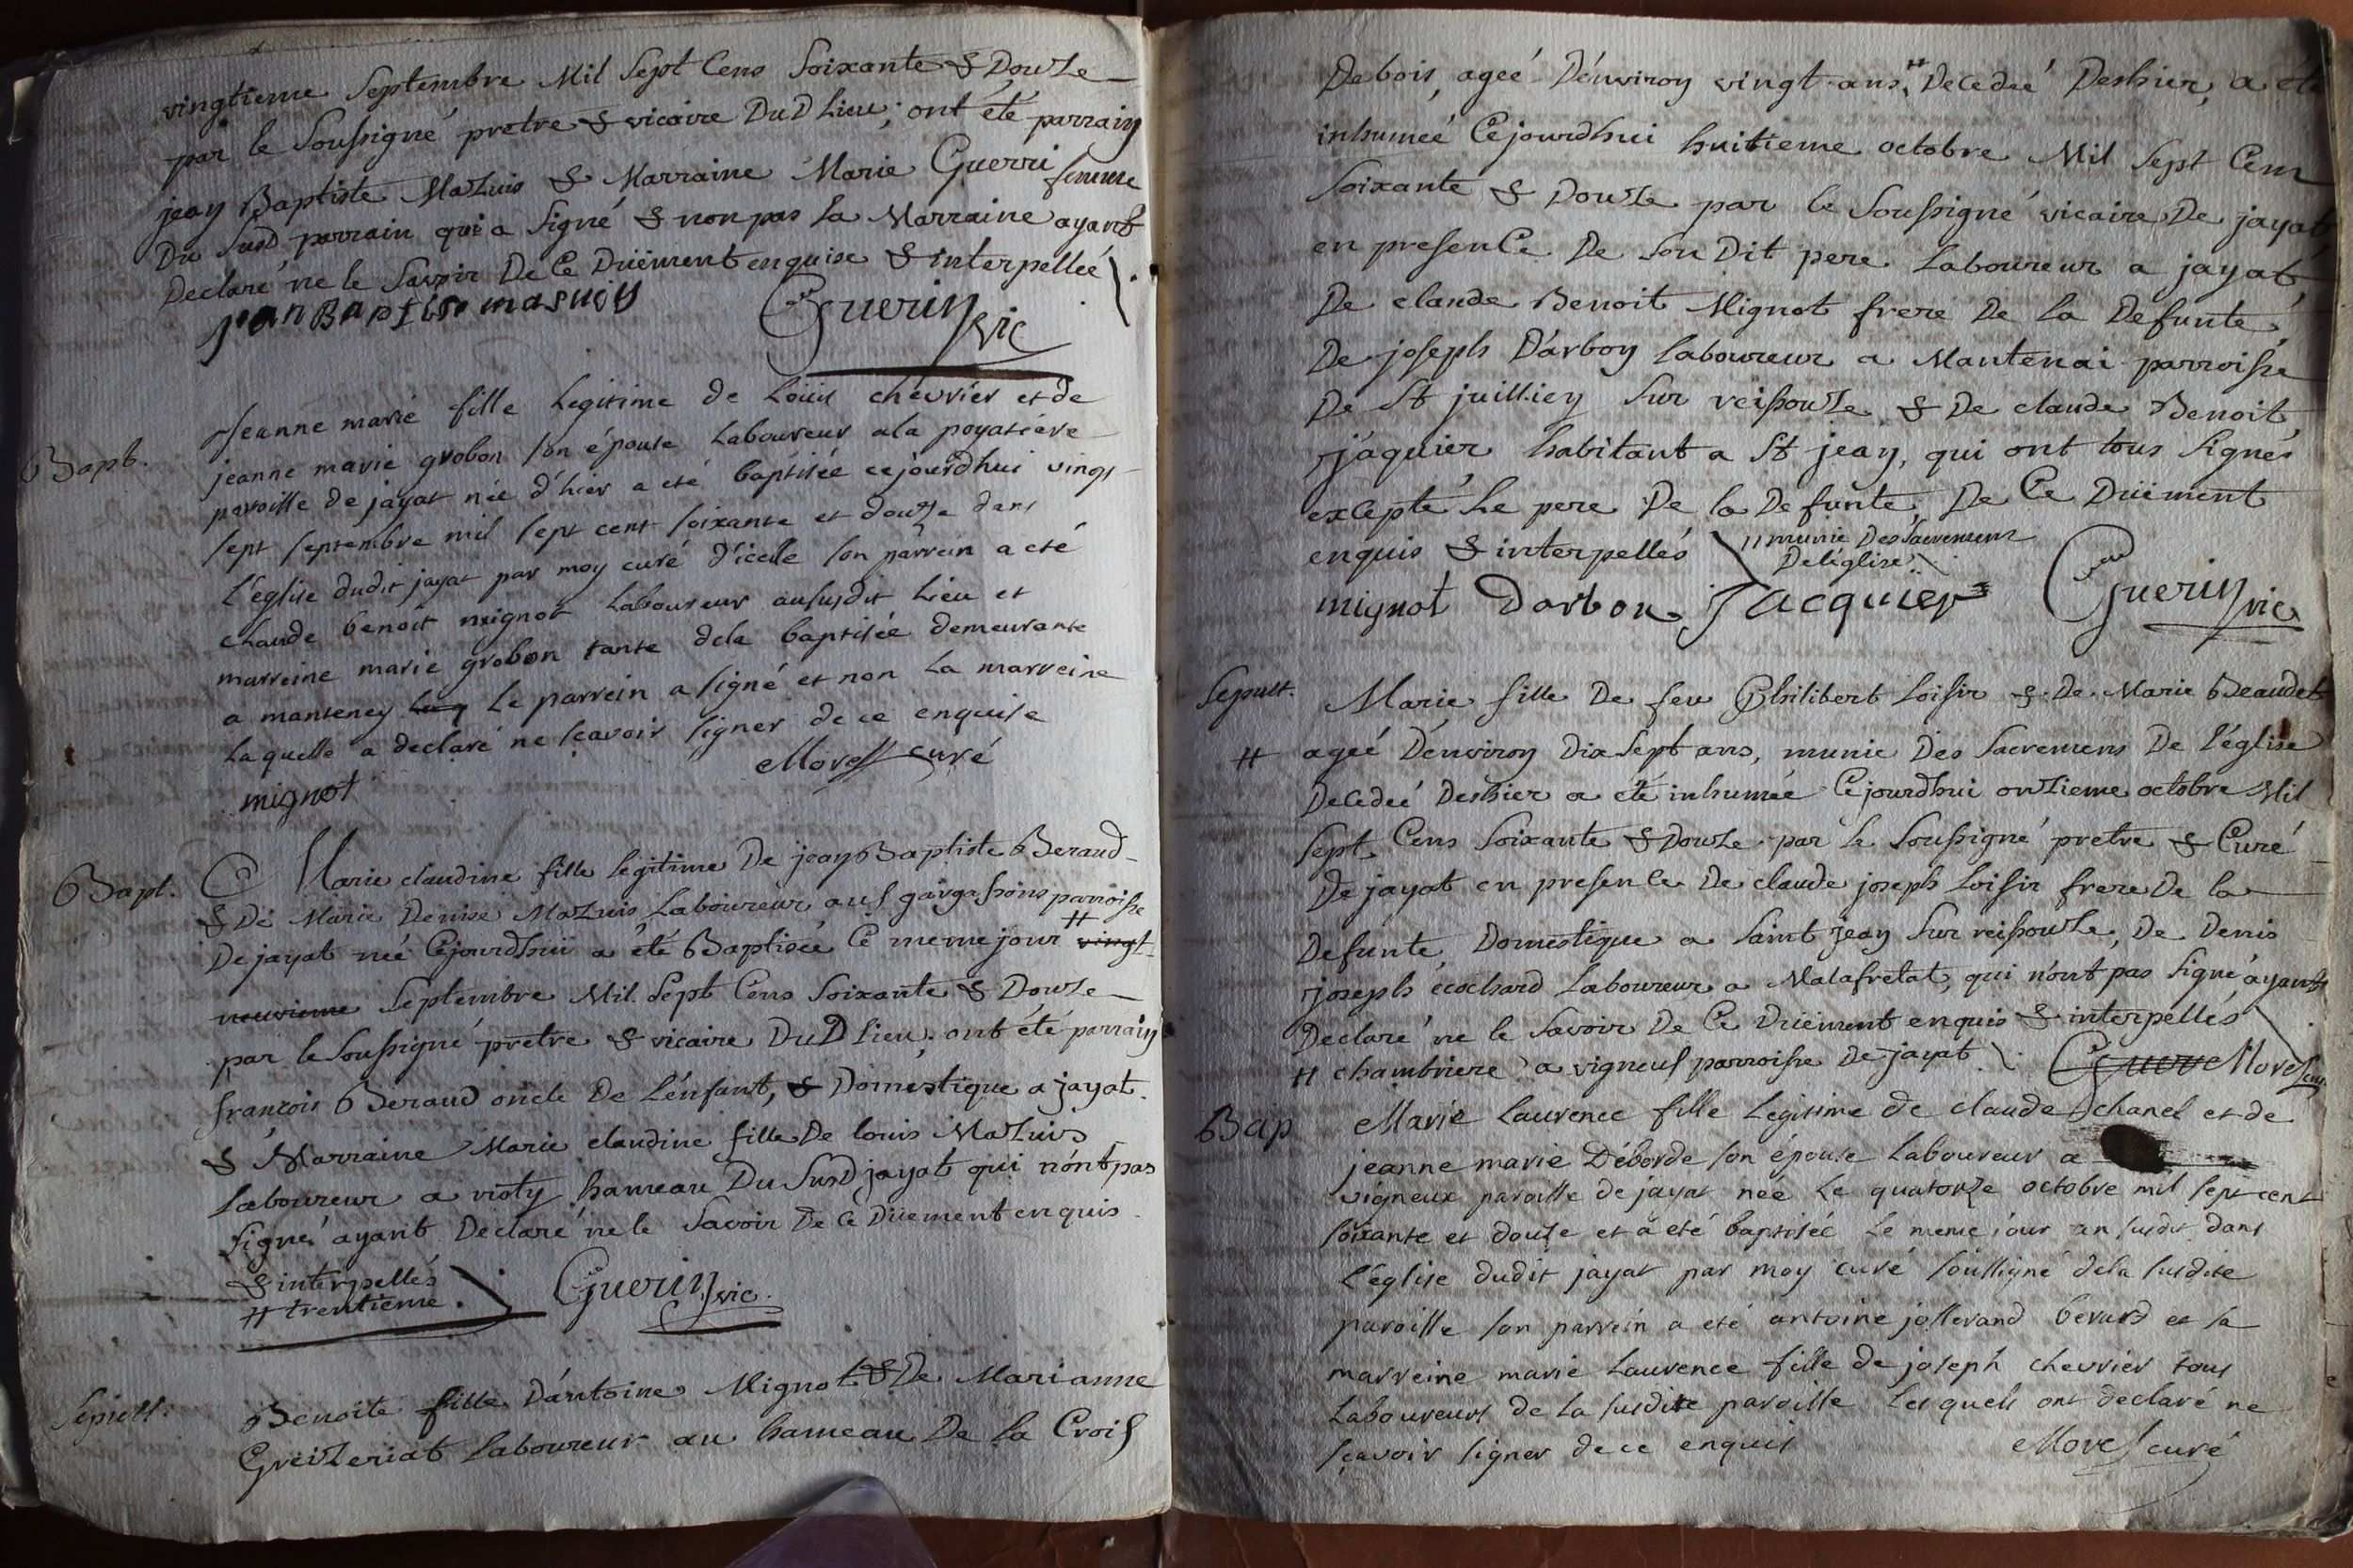 vingtieme Septembre Mil Sept Cens Soixante & Douze
par le Soussigné pretre & vicaire DuD Lieu; ont été parrain
jean Baptiste Mazuis & Marraine Marie Guerri femme
Du SusD parrain qui a Signé & non pas la Marraine ayant
Declaré ne le Savoir De Ce Duëment enquise & interpelleé
jean Baptiste masuis Guerin vic
Bapt.
Jeanne marie fille Legitime de Loüis chevrier et de
jeanne marie grobon son épouse Laboureur a la poyatiere
paroisse de jayat née d'hier a eté baptisée ce jourd'hui vingt
sept septembre mil sept cent soixante et douze dans
L'église dudit jayat par moy curé d'icelle son parrein a eté
claude benoit mignot Laboureur aususdit Lieu et
marreine marie grobon tante dela baptisée demeurante
a manteney Le parrein a signé et non La marreine
Laquelle a declaré ne sçavoir signer de ce enquise
mignot Morel curé
Bapt.
Marie claudine fille legitime De jean Baptiste Beraud
& De Marie Denise Mazuis Laboureur aus gargassons parroisse
De jayat neé Cejourdhui a été Baptiseé Ce meme jour # vingt
neuvieme Septembre Mil Sept Cens Soixante & Douze
par le Soussigné pretre & vicaire DuD Lieu; ont été parrain
françois Beraud oncle De L'énfant, & Domestique a jayat
& Marraine Marie claudine fille De louis Mazuis
laboureur a violy hameau Du SusD jayat qui n'ónt pas
Signé ayant Declaré ne le Savoir De Ce Duëment enquis
& interpellés
# trentieme. Guerin vic.
Sepult.
Benoite fille D'antoine Mignot & De Marianne
Greizeriat laboureur au hameau De la Crois
Debois, ageé D'énviron vingt ans, # Decedeé Deshier, a été
inhumeé Cejourdhui huitieme octobre Mil Sept Cens
Soixante & Douze par le Soussigné vicaire De jayat
en presence De Son Dit pere Laboureur a jayat,
De claude Benoit Mignot frere De la Defunte,
De joseph D'arbon laboureur a Mantenai parroisse
De St juillien Sur reissouze & De claude Benoit
jaquier habitant a St jean, qui ont tous Signés
excepté Le pere De la Defunte, De Ce Duëment
enquis & interpellés # munie Des Sacremens
De l'église.
mignot Darbon Jacquier Guerin vic
Sepult.
Marie fille De feu Philibert Loisir & De Marie Beaudet
# ageé D'énviron Dix Sept ans, munie Des Sacremens De l'église
Decedeé Deshier a été inhumée Cejourdhui onzieme octobre Mil
Sept Cens Soixante & Douze par le Soussigné pretre & Curé
De jayat en presence De claude joseph Loisir frere De la
Defunte, Domestique a Saint Jean Sur reissouze, De Denis
joseph écochard Laboureur a Malafretat, qui n'ónt pas Signé ayants
Declaré ne le Savoir De Ce Duëment enquis & interpellés
# chambriere a vigneus parroisse De jayat. Morel cur.
Bap
Marie Laurence fille Legitime de claude chanel et de
jeanne marie Déborde son épouse Laboureur a
vigneux paroisse de jayat née Le quatorze octobre mil sept cent
soixante et douze et a eté baptisée Le meme jour an susdit dans
L'église dudit jayat par moy curé soussigné dela susdite
paroisse son parrein a eté antoine josserand bevard et sa
marreine marie Laurence fille de joseph chevrier tous
Laboureurs de La susdite paroisse Lesquels ont declaré ne
sçavoir signer de ce enquis Morel curé